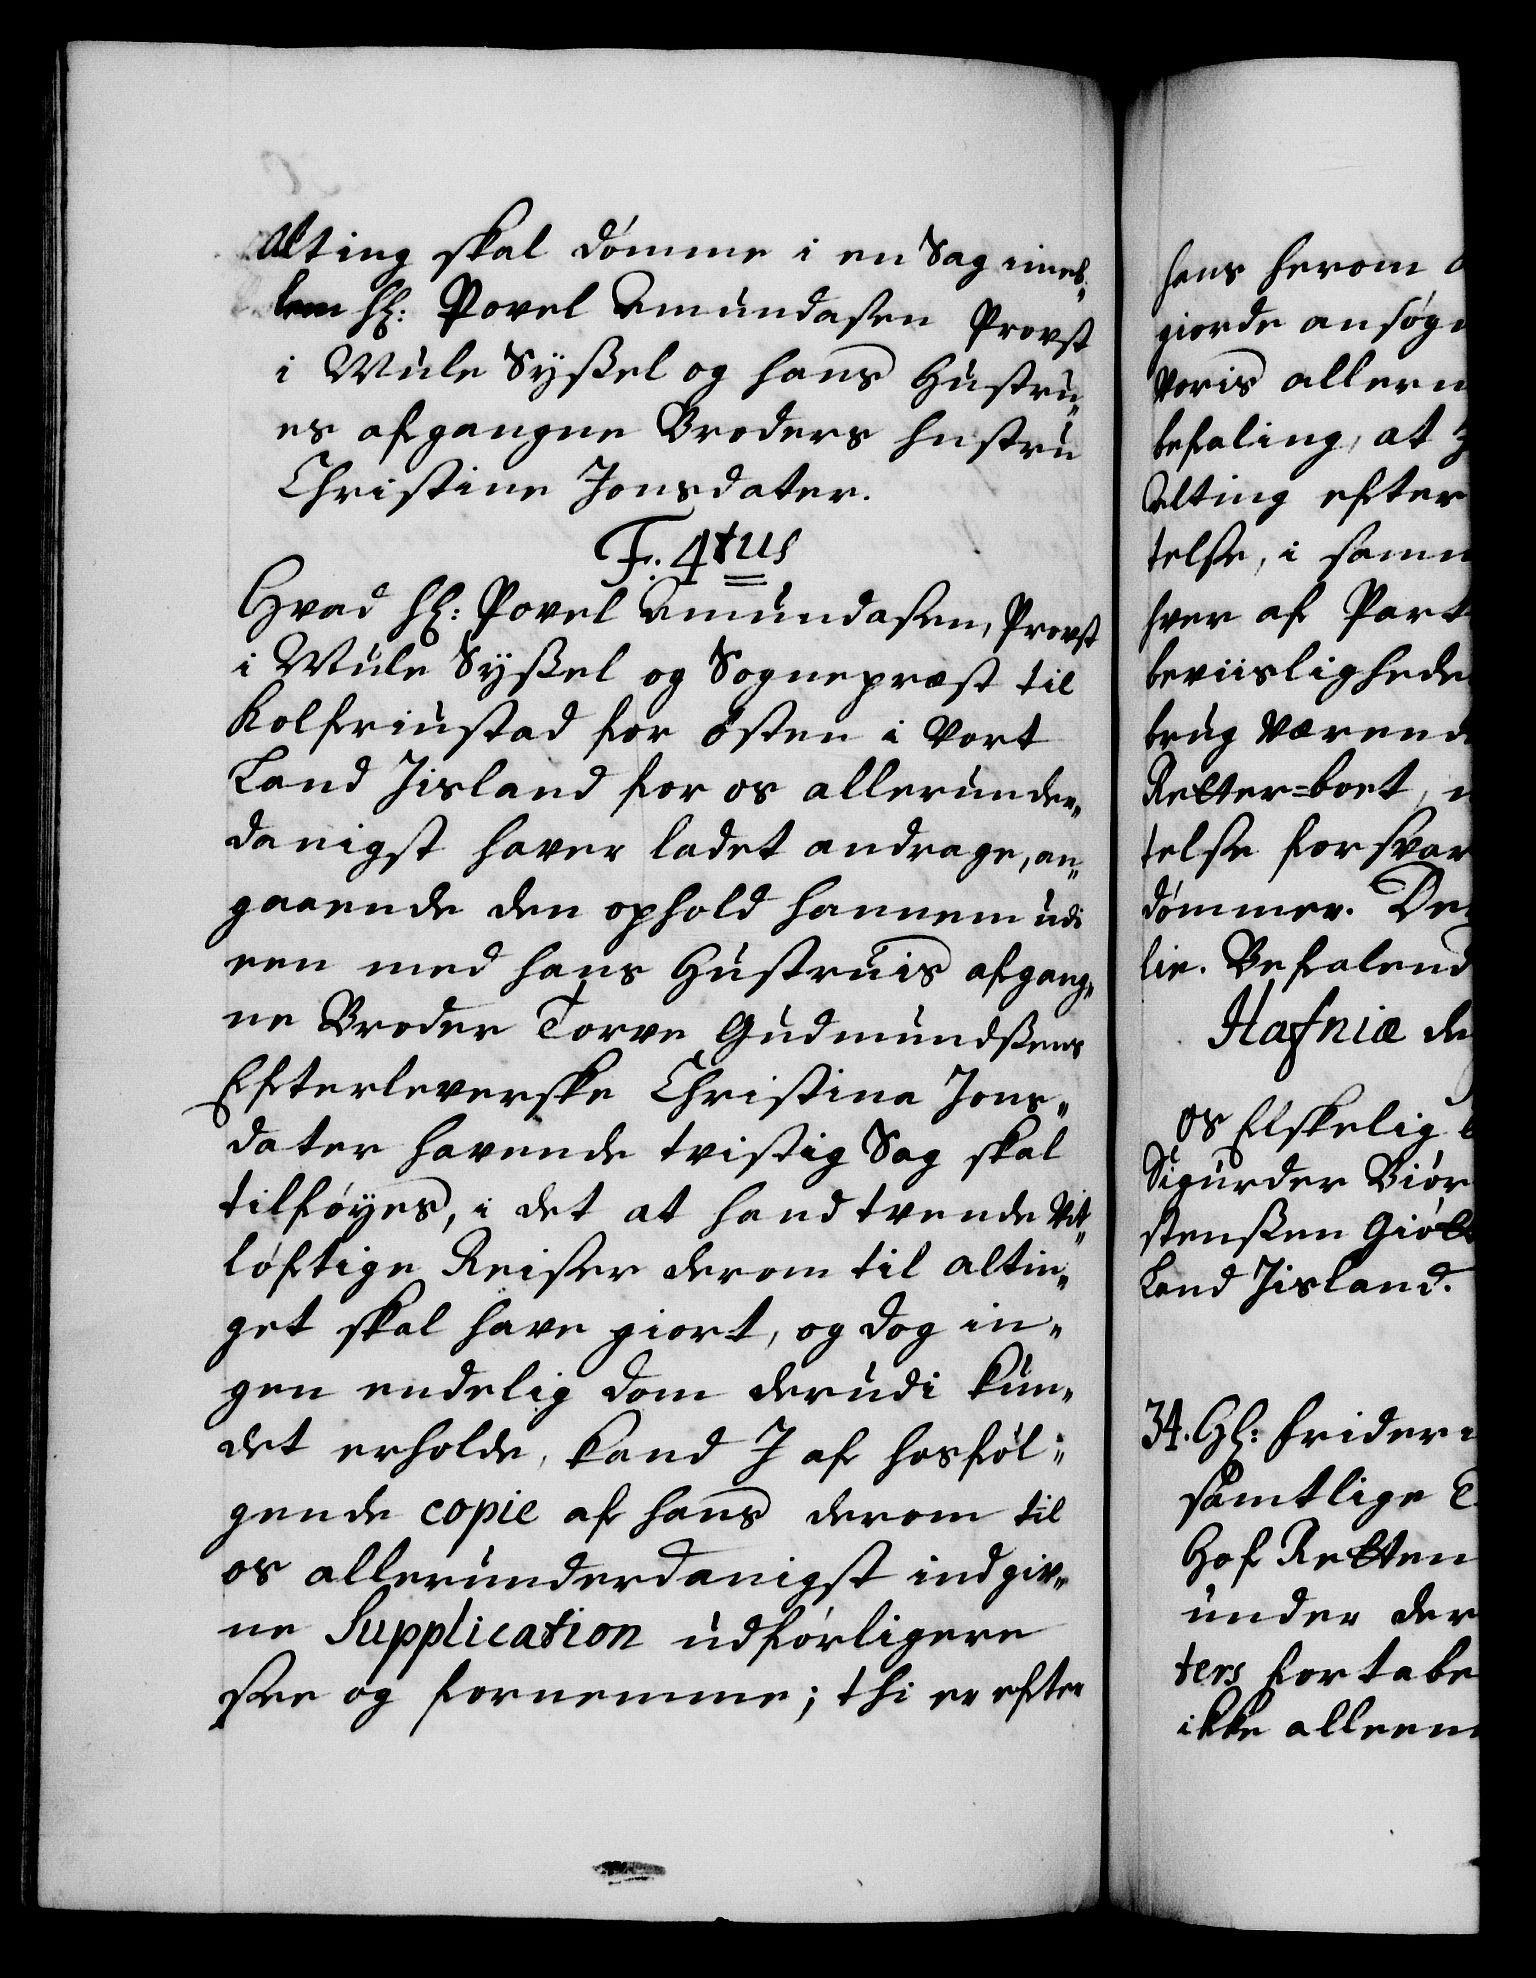 Alting skal dömme i en Sag imel„
lem hℓ: Povel Amundasen Provst
i Mule Syßel og hans Hustru„
es afgangne Broders Hustru
Christine Jonsdater.
F. 4tus
Hvad hℓ: Povel Amundasen, Provst
i Mule Syßel og Sognepræst til
Kolfriustad for östen i vort
Land Jisland for os allerunder„
danigst haver ladet andrage, an„
gaaende den ophold hannem udi
een med hans Hustruis afgang„
ne Broder Torve Gudmundßens
Efterleverske Christina Jons„
dater havende tvistig Sag skal
tilföyes, i det at hand tvende vit„
löftige Reiser derom til altin„
get skal have giort, og dog in„
gen endelig dom derudi kun„
det erholde, kand J af hosföl„
gende copie af hans derom til
os allerunderdanigst indgiv„
ne Supplication udförligere
see og fornemme; thi er efter
hans herom
giorde ansögn
voris allern
befaling, at
Alting efter
telse, i samm
hver af Part
beviisligheder
brug værend
Retter=boet,
telse forsvar
dömmer. De
lie. Befalend
Hafniæ de
os Elskelig
Sigurder Biör
stenßen Giöt
Land Jisland.
34. Gℓ: frideri
samtlige
Hof Retten
under der
ters fortabe
ikke alleen